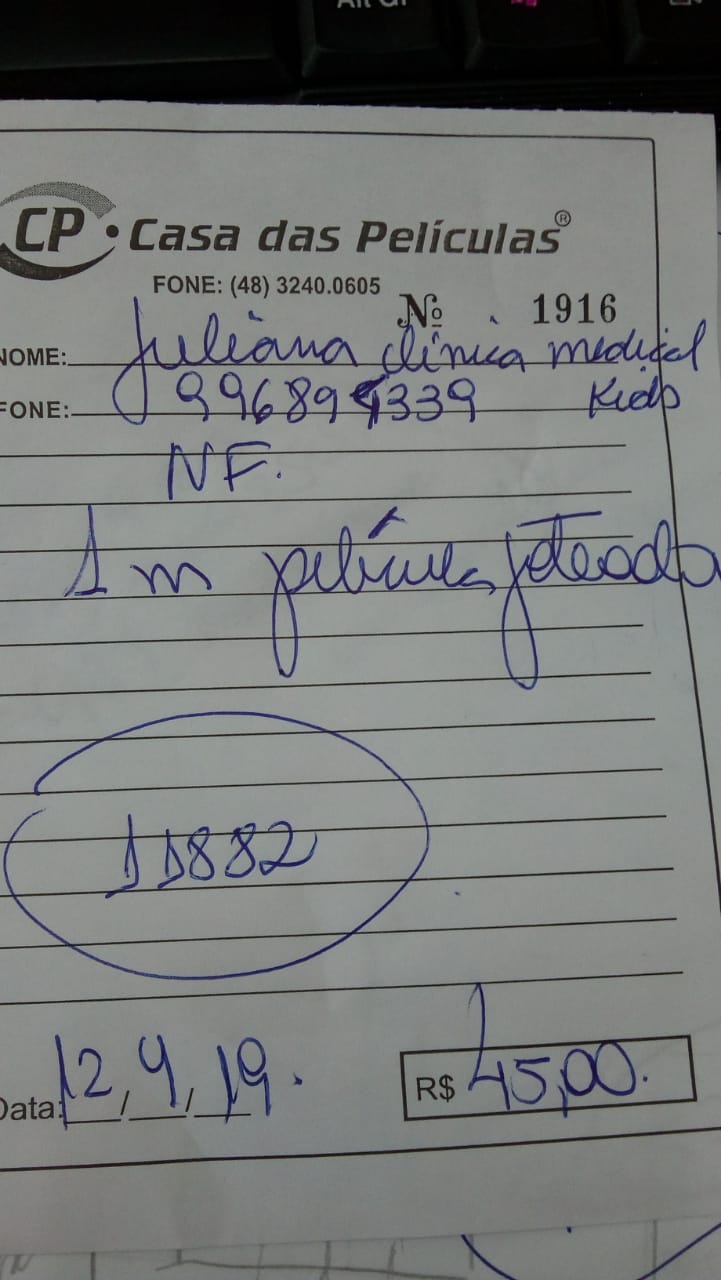 Alt Gr
CP • Casa das Películas®
FONE: (48) 3240.0605
Nº 1916
NOME: Juliana clínica medical
FONE: 996899339 Kids
NF.
1 m película jateada
11882
Data: 12/4/19.
R$ 45,00.